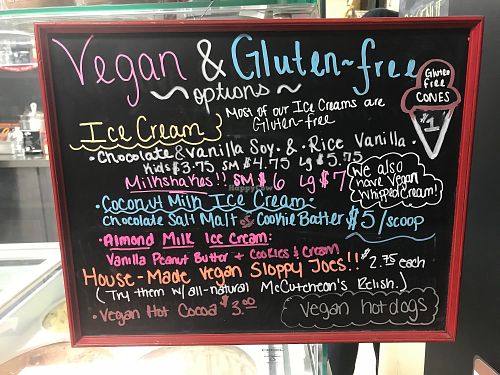 Vegan & Gluten-free
~ options ~
Most of our Ice Creams are
Gluten-free
Gluten
free
CONES
$1
Ice Cream
• Chocolate & Vanilla Soy • & • Rice Vanilla •
Kids $3.75 SM $4.75 Lg $5.75
Milkshakes!! SM $6 Lg $7
We also
have Vegan
Whipped Cream!
• Coconut Milk Ice Cream:
Chocolate Salt Malt & Cookie Batter $5/scoop
• Almond Milk Ice Cream:
Vanilla Peanut Butter + Cookies & Cream
House-Made Vegan Sloppy Joes!! $2.75 each
(Try them w/ all-natural McCutcheon's Relish.)
• Vegan Hot Cocoa $3.00
Vegan hotdogs
HappyCow